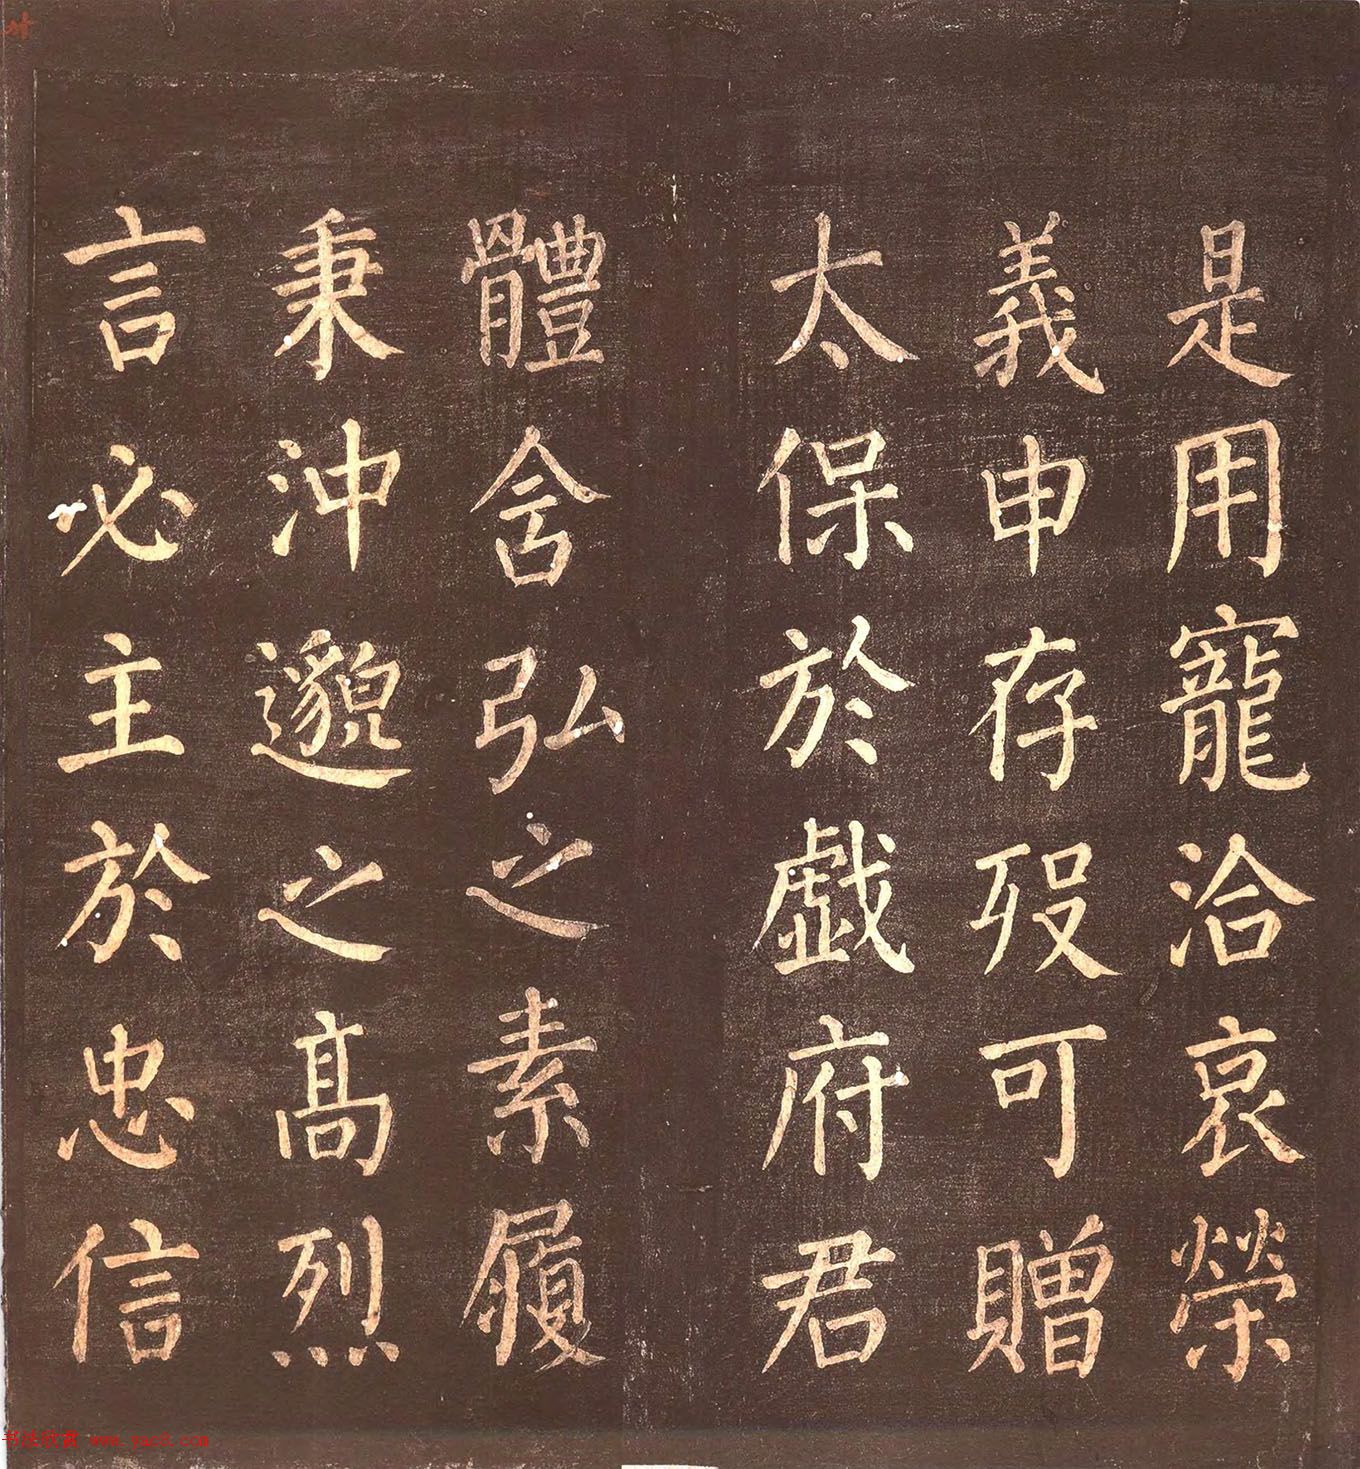 是用寵洽哀榮
義申存歿可贈
太保於戲府君
體含弘之素履
秉沖邈之髙烈
言必主於忠信
书法欣赏 www.yac8.com